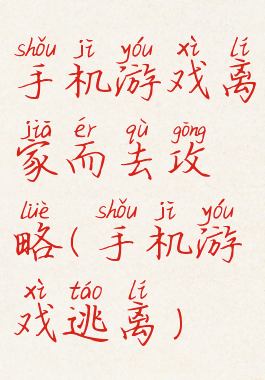 shǒu jī yóu xì lí
手机游戏离
jiā ér qù gōng
家而去攻
lüè shǒu jī yóu
略(手机游
xì táo lí
戏逃离)